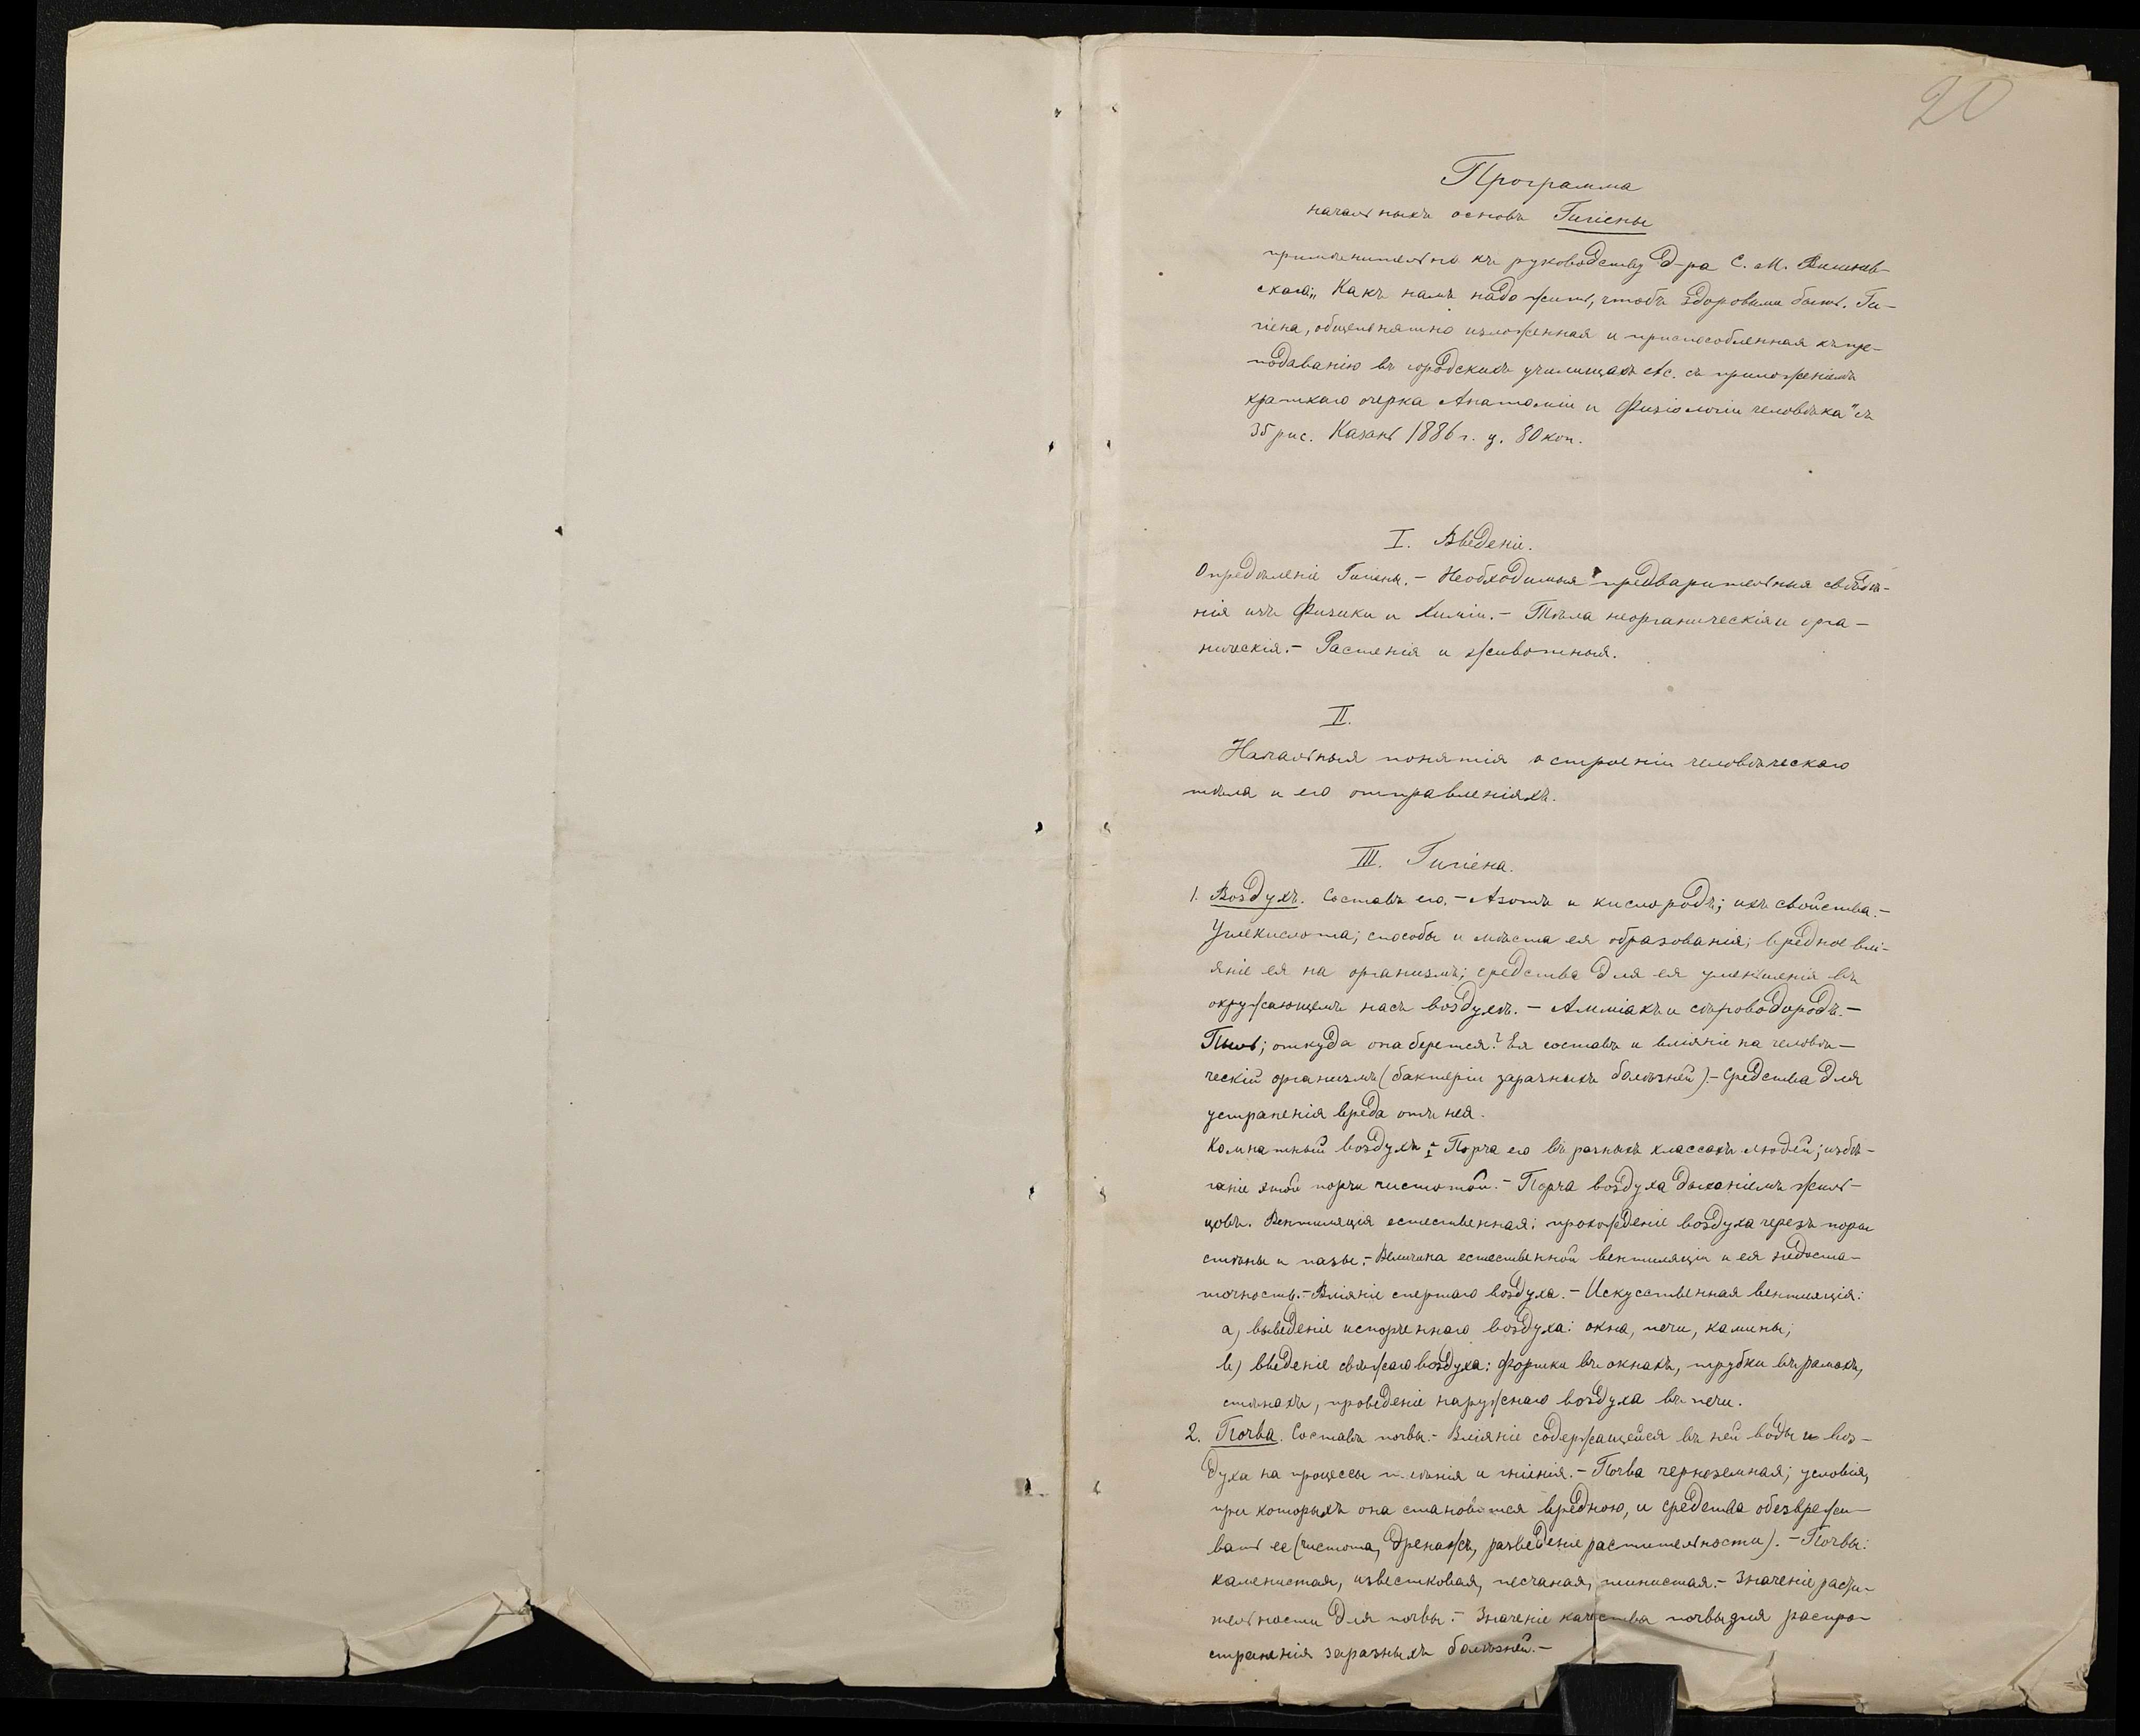 20
Программа
начальныхъ основъ Гигіены
примѣнительно къ руководству д-ра С. М. Вишнев-
скаго: „Какъ намъ надо жить, чтобъ здоровыми быть. Ги-
гіена, общепонятно изложенная и приспособленная къ пре-
подаванію въ городскихъ училищахъ etc. съ приложеніемъ
краткаго очерка Анатоміи и Физіологіи человѣка" съ
35 рис. Казань 1886 г. ц. 80 коп.
I. Введеніе.
Опредѣленіе Гигіены. – Необходимыя предварительныя свѣдѣ-
нія изъ Физики и Химіи. – Тѣла неорганическія и орга-
ническія. – Растенія и животныя.
II.
Начальныя понятія о строеніи человѣческаго
тѣла и его отправленіяхъ.
III. Гигіена.
1. Воздухъ. Составъ его. – Азотъ и кислородъ; ихъ свойства. –
Углекислота; способы и мѣста ея образованія; вредное влі-
яніе ея на организмъ; средства для ея уменьшенія въ
окружающемъ насъ воздухѣ. – Амміакъ и сѣроводородъ. –
Пыль; откуда она берется? Ея составъ и вліяніе на человѣ-
ческій организмъ (бактеріи заразныхъ болѣзней). – Средства для
устраненія вреда отъ нея.
Комнатный воздухъ: – Порча его въ разныхъ классахъ людей; избѣ-
ганіе этой порчи чистотой. – Порча воздуха дыханіемъ жиль-
цовъ. Вентиляція естественная: прохожденіе воздуха черезъ поры
стѣны и пазы. – Величина естественной вентиляціи и ея недоста-
точность. – Вліяніе спертаго воздуха. – Искусственная вентиляція:
а) выведеніе испорченнаго воздуха: окна, печи, камины;
b) введеніе свѣжаго воздуха: форточки въ окнахъ, трубки въ рамахъ,
стѣнахъ, проведеніе наружнаго воздуха въ печи.
2. Почва. Составъ почвы. – Вліяніе содержащейся въ ней воды и воз-
духа на процессы тлѣнія и гніенія. – Почва черноземная; условія,
при которыхъ она становится вредною, и средства обезврежи-
вать ее (чистота, дренажъ, разведеніе растительности). – Почвы:
каменистая, известковая, песчаная, глинистая. – Значеніе расти-
тельности для почвы. – Значеніе качества почвы для распро-
страненія заразныхъ болѣзней. –